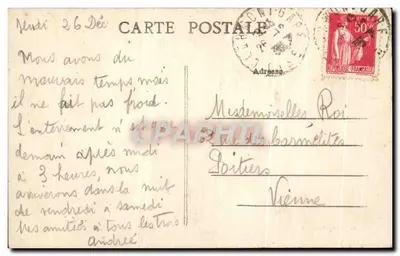 Jeudi 26 Déc
CARTE POSTALE
Nous avons du
mauvais temps mais
il ne fait pas froid.
L'enterrement n'est
demain après midi
à 3 heures, nous
arriverons dans la nuit
de vendredi à samedi
Des amitiés à tous les trois
Andrée
Adresse
Mesdemoiselles Roi
des Carmélites
Poitiers
Vienne
50